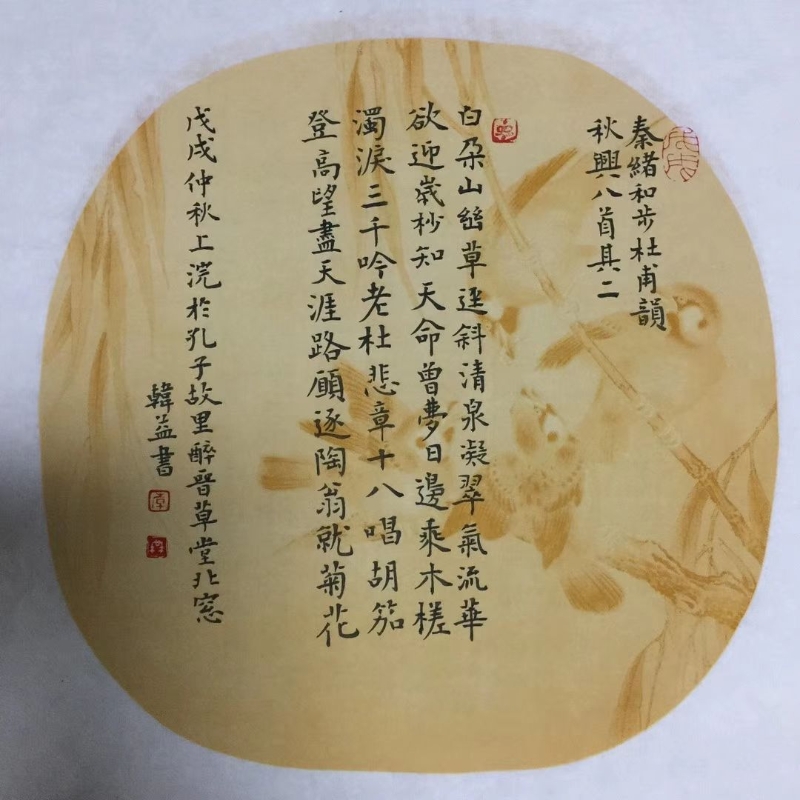 秦緒和步杜甫韻
秋興八首其二
白朵山㘭草逕斜清泉凝翠氣流華
欲迎歲杪知天命曾夢日邊乘木槎
濁淚三千吟老杜悲章十八唱胡笳
登高望盡天涯路願逐陶翁就菊花
戊戌仲秋上浣於孔子故里醉晉草堂北窓
韓益書